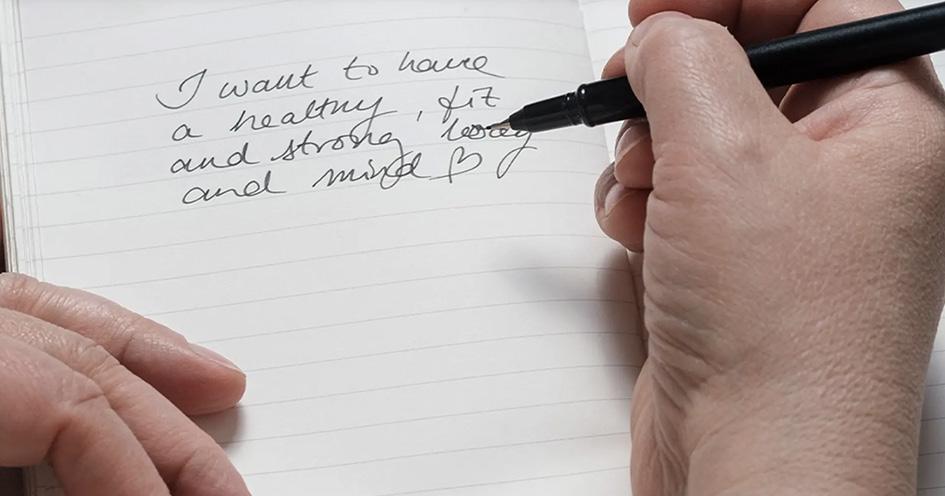 I want to have
a healthy, fit
and strong body
and mind ♡